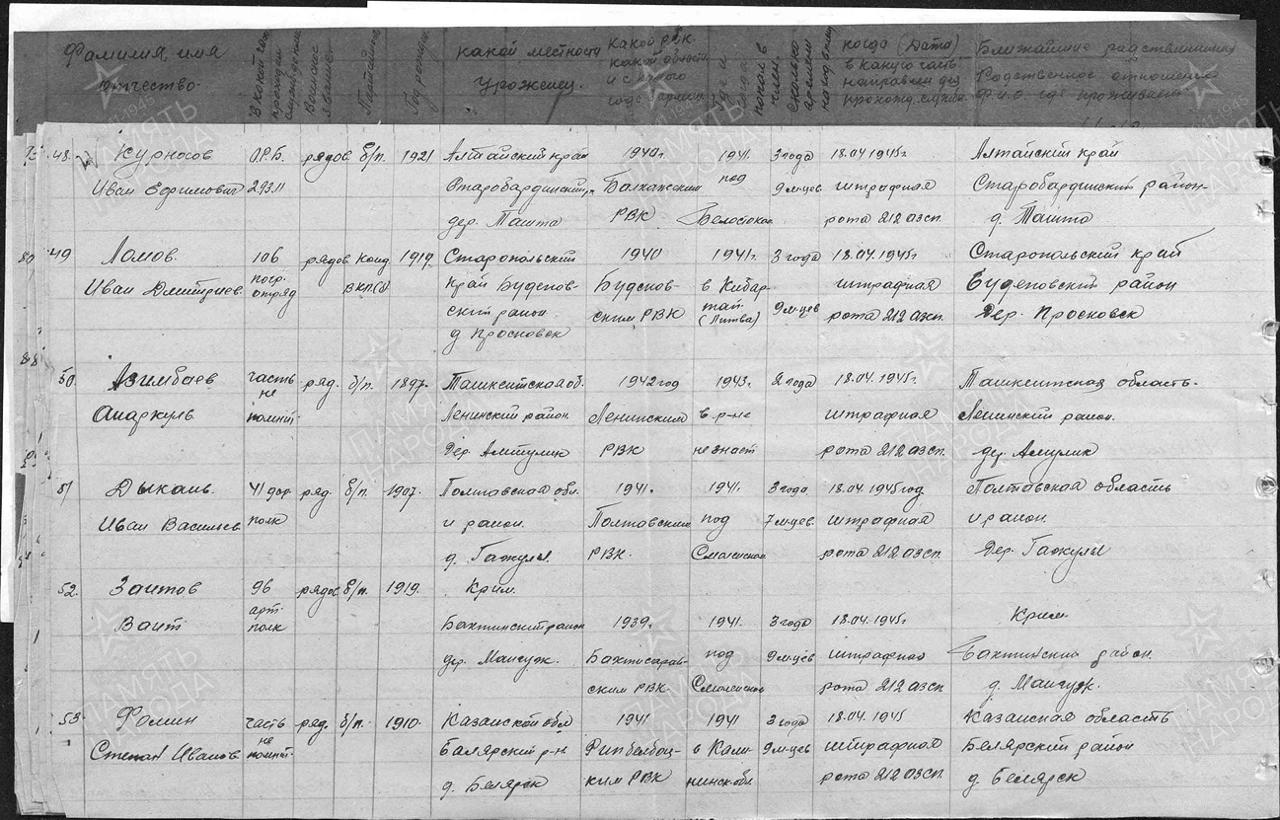 Фамилия имя отчество.
В какой части проходил службу до плена
Воинское звание
Партийность
Год рожден.
какой местности урожениц.
какой РВК какой области и с какого года в армии
где и когда попал в плен.
Сколько времени находился в плену
когда (Дата) в какую часть направлен для прохожд. службы
Ближайшие родственники Родственное отношение ф.и.о. где проживает
48. Курносов О.Р.Б. рядов б/п. 1921 Алтайский край 1940г. 1941. 3 года 18.04.1945г Алтайский край
Иван Ефимович 293.11 Старобардинский р. Балханским под 9 м-цев штрафная Старобардинский район-
дер. Ташта РВК Белостоком рота 212 азсп. д. Ташта
49 Ломов. 106 рядов Канд 1919. Старопольский 1940 1941г. 3 года 18.04.1945г Старопольский край
Иван Дмитриев. погр. отряд ВКП(б) край Буденов- Буденов- в Кибар- штрафная Буденовский район
ский район. ским РВК тай (Литва) 9 м-цев рота 212 азсп. Дер. Просковск
д Просковск
50. Азимбаев часть ряд. б/п. 1897. Ташкентская об. 1942 год 1943. 2 года 18.04.1945г. Ташкентская область.
Анаркуль не помнит Ленинский район Ленинским в р-не штрафная Ленинский район.
Дер. Амтулик РВК не знает рота 212 азсп. дер. Амулик
51 Дыкань. 41 дор. ряд. б/п. 1907. Полтавская обл. 1941. 1941. 3 года 18.04.1945 год Полтавская область
Иван Васильев полк и район. Полтавским под 7 м-цев. штрафная и район.
д. Гажулы. РВК. Смоленском рота 212 азсп. Дер. Гажулы
52. Заитов 96 рядов б/п. 1919. Крим.
Ваит арт. полк Бахтинский район 1939. 1941. 3 года 18.04.1945г Крим.
дер. Мангудж. Бахтисарай- под 9 м-цев штрафная Бахтинский район.
ским РВК. Смоленском рота 212 азсп д. Мангудж.
53. Фомин часть ряд. б/п. 1910. Казанской обл 1941 1941 3 года 18.04.1945 Казанская область
Степан Иванов. не помнит. Балярский р-н в Кали- 9 м-цев штрафная Белярский район
д. Белярск ким РВК нинск. обл. рота 212 азсп. д. Белярск
ПАМЯТЬ НАРОДА